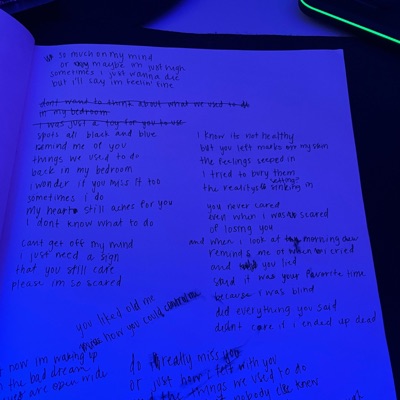 so much on my mind
or maybe im just high
sometimes i just wanna die
but i'll say im feelin' fine
dont want to think about what we used to do
in my bedroom
i was just a toy for you to use
spots all black and blue
remind me of you
things we used to do
back in my bedroom
i wonder if you miss it too
sometimes i do
my heart still aches for you
i dont know what to do
cant get off my mind
i just need a sign
that you still care
please im so scared
I know its not healthy
but you left marks on my skin
the feelings seeped in
I tried to bury them
the reality's setting in
sinking
you never cared
even when i was scared
of losing you
and when i look at morning dew
reminds me of when i cried
and you lied
said it was your favorite time
because i was blind
did everything you said
didnt care if i ended up dead
you liked old me
how you could
now im waking up
the bad dream
eyes are open wide
do i really miss you
or just how i felt with you
and the things we used to do
nobody else knew